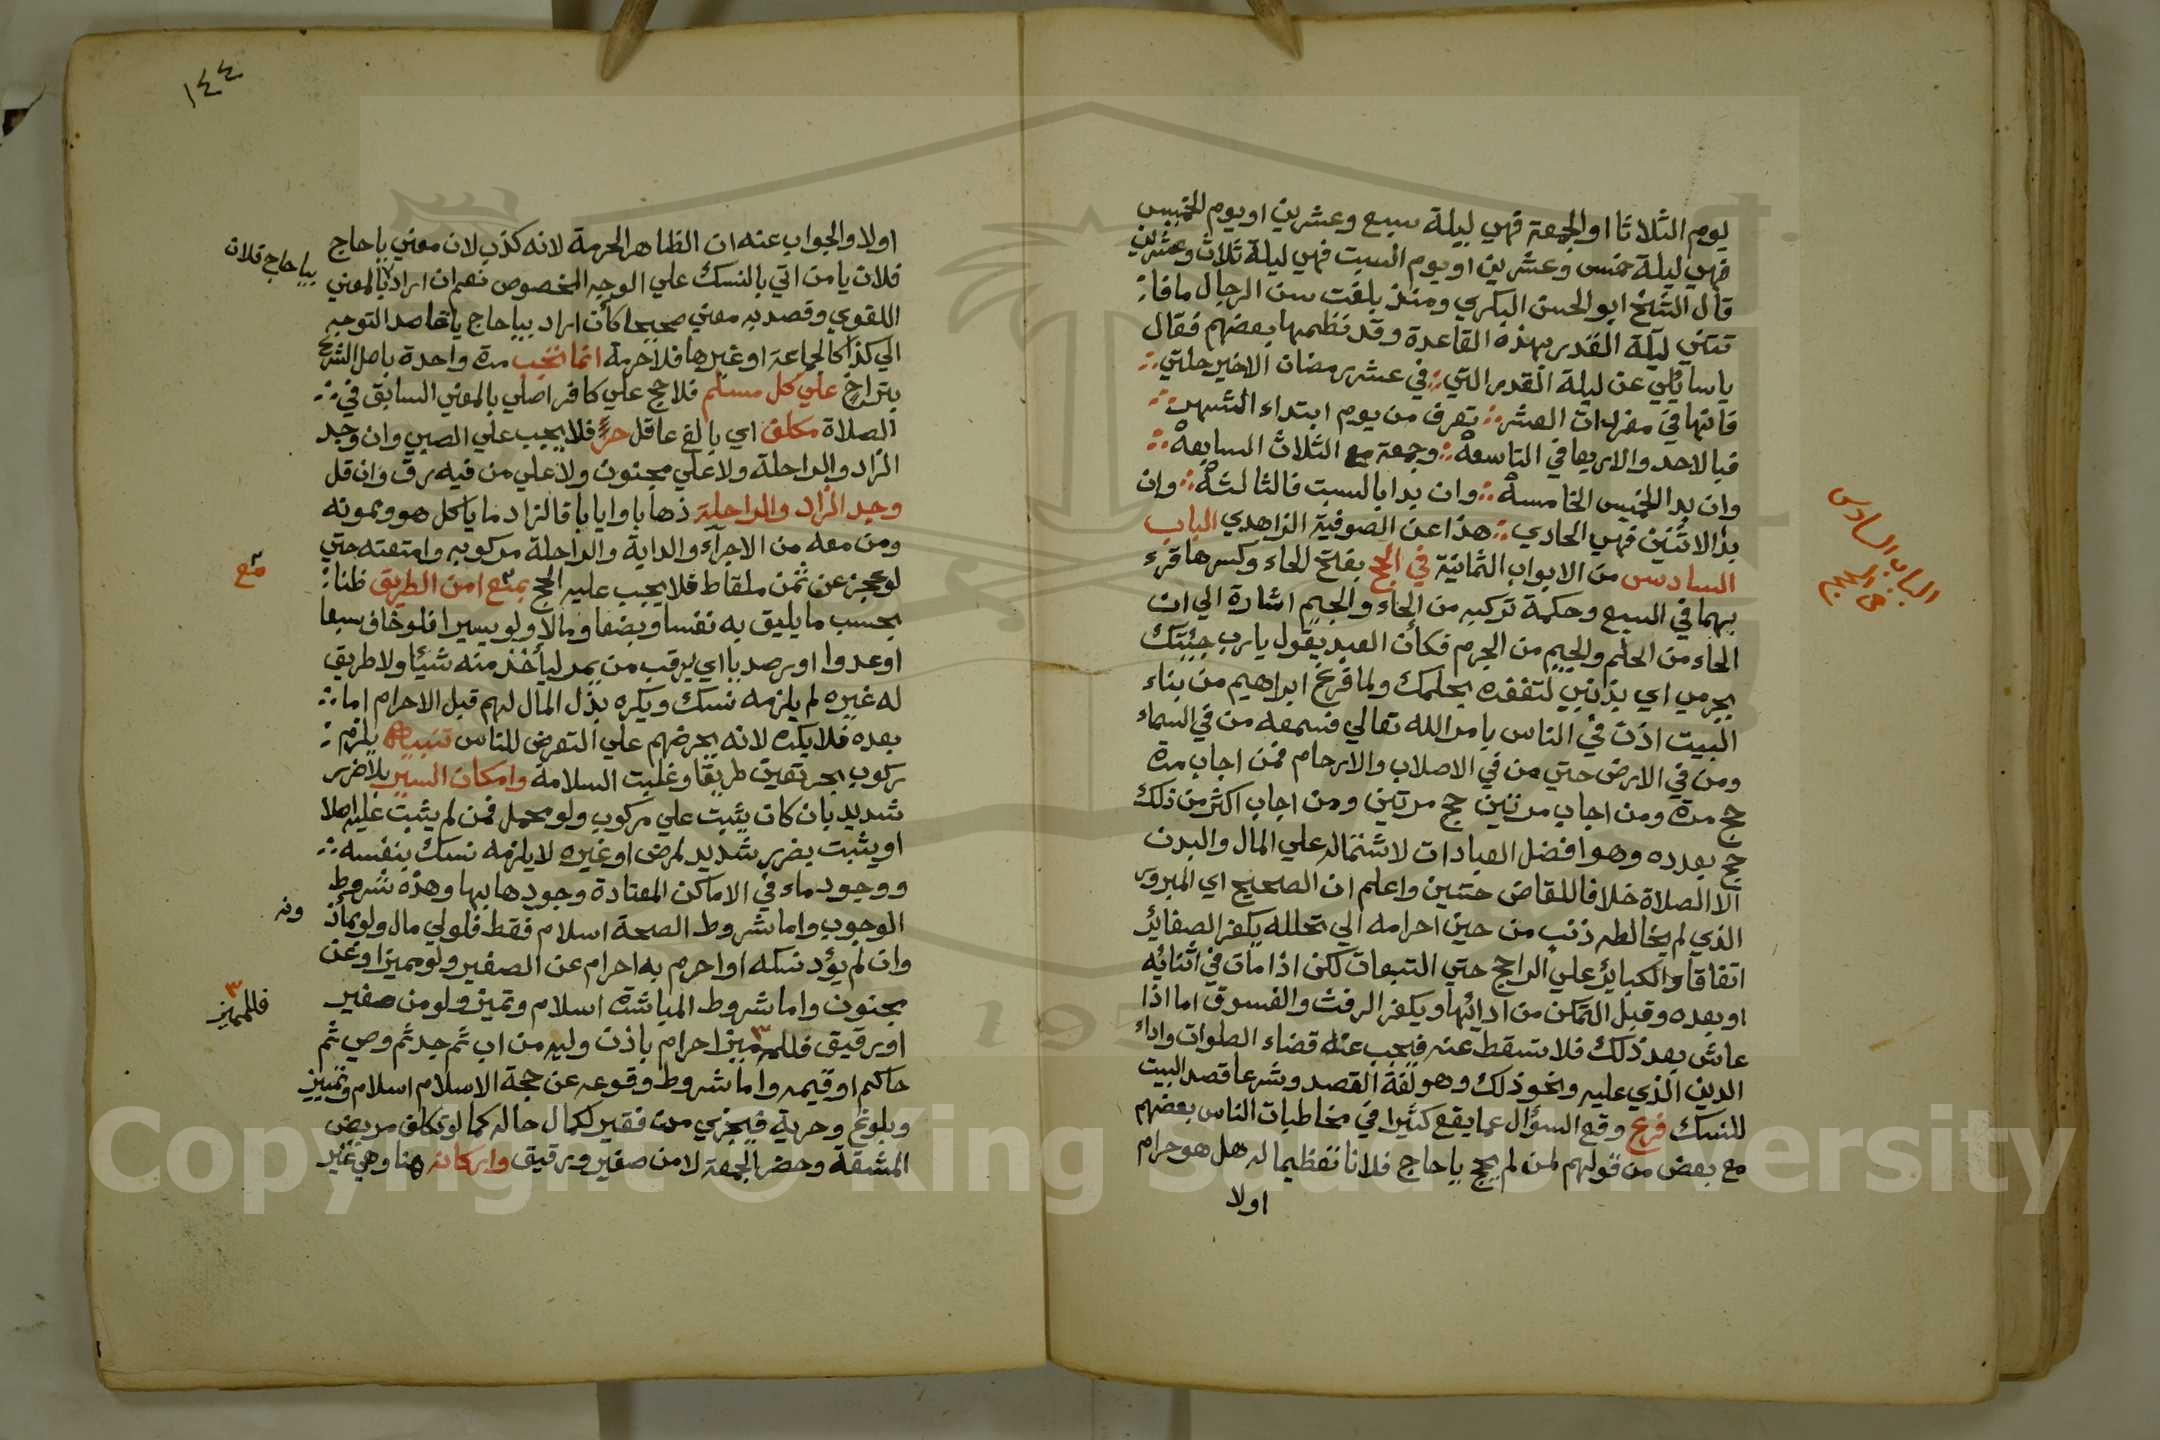 يوم الثلاثا او الجمعة فهي ليلة سبع وعشرين او يوم الخميس
فهي ليلة خمس وعشرين او يوم السبت فهي ليلة ثلاث وعشرين
قال الشيخ ابو الحسن البكري ومنذ بلغت سن الرجال ما فا
تتني ليلة القدر بهذه القاعدة وقد نظمها بعضهم فقال
يا سايلي عن ليلة القدر التي في عشر رمضان الاخير حلتي
فانها في مفردات العشر تعرف من يوم ابتداء الشهر
فبالاحد والاربعا في التاسعة وجمعة مع الثلاث السابعة
وان بدا الخميس الخامسة وان بدا بالسبت فالثالثة وان
بدا الاثنين فهي الحادي هذا عن الصوفية الزاهدي الباب
السادس من الابواب الثمانية في الحج بفتح الحاء وكسرها قرء
بهما في السبع وحكمة تركيبه من الحاء والجيم اشارة الي ان
الحاء من الحلم والجيم من الجرم فكأن العبد يقول يا رب جئتك
بجرمي اي بذنبي لتغفره بحلمك ولما فرغ ابراهيم من بناء
البيت اذن في الناس بامر الله تعالي فسمعه من في السماء
ومن في الارض حتي من في الاصلاب والارحام فمن اجاب مرة
حج مرة ومن اجاب مرتين حج مرتين ومن اجاب اكثر من ذلك
حج بعدده وهو افضل العبادات لاشتماله علي المال والبدن
الا الصلاة خلافا للقاضي حسين واعلم ان الصحيح اي المبرور
الذي لم يخالطه ذنب من حين احرامه الي تحلله يكفر الصغاير
اتفاقا والكباير علي الراجح حتي التبعات لكن اذا مات في اثنايه
او بعده وقبل التمكن من ادائها ويكفر الرفث والفسوق اما اذا
عاش بعد ذلك فلا تسقط عنه فيجب عليه قضاء الصلوات واداء
الدين الذي عليه ونحو ذلك وهو لغة القصد وشرعا قصد البيت
للنسك فرع وقع السؤال عما يقع كثيرا في مخاطبات الناس بعضهم
مع بعض من قولهم لمن لم يحج يا حاج فلانا تعظيما له هل هو حرام
اولا
الباب السادس
في الحج
١٤٤
اولا والجواب عنه ان الظاهر الحرمة لانه كذب لان معني يا حاج
فلان يا من اتي بالنسك علي الوجه المخصوص نعم ان اراد بالمعني
اللغوي وقصد به معني صحيحا كأن اراد بيا حاج يا قاصد التوجه
الي كذا كالجماعة او غيرها فلا حرمة انما تجب مرة واحدة باصل الشرع
بتراخ علي كل مسلم فلا حج علي كافر اصلي بالمعني السابق في
الصلاة مكلف اي بالغ عاقل حر فلا يجب علي الصبي وان وجد
الزاد والراحلة ولا علي مجنون ولا علي من فيه رق وان قل
وجد الزاد والراحلة ذهابا وايابا فالزاد ما ياكل هو ومونه
ومن معه من الاجراء والداية والراحلة مركوبه وامتعته حتي
لو عجز عن ثمن ملقاط فلا يجب عليه الحج بمنع امن الطريق ظنا
بحسب ما يليق به نفسا وبضعا ومالا ولو يسيرا فلو خاف سبعا
او عدوا او رصديا اي يرقب من يمر ليأخذ منه شيئا ولا طريق
له غيره لم يلزمه نسك ويكره بذل المال لهم قبل الاحرام اما
بعده فلا يكره لانه يحرضهم علي التعرض للناس تنبيه يلزم
ركوب بحر تعين طريقا وغلبت السلامة وامكان السير بلا ضرر
شديد بان كان يثبت علي مركوب ولو محمل فمن لم يثبت عليه اصلا
او يثبت بضرر شديد لمرض او غيره لا يلزمه نسك بنفسه
ووجود ماء في الاماكن المعتادة وجودها بها وهذه شروط
الوجوب واما شروط الصحة اسلام فقط فلولي مال ولو بمأذ
وان لم يؤد نسكه او احرم به احرام عن الصغير ولو مميزا وعن
مجنون واما شروط المباشرة اسلام وتميز ولو من صغير
او رقيق فللمميز احرام باذن وليه من اب ثم جد ثم وصي ثم
حاكم او قيمه واما شروط وقوعه عن حجة الاسلام اسلام وتمييز
وبلوغ وحرية فيجزي من فقير لكمال حاله كما لو تكلف مريض
المشقة وحضر الجمعة لا من صغير ورقيق واركانه هنا وهي غير
بيا حاج فلان
مع
ونه
فللمميز
Copyright © King Saud University